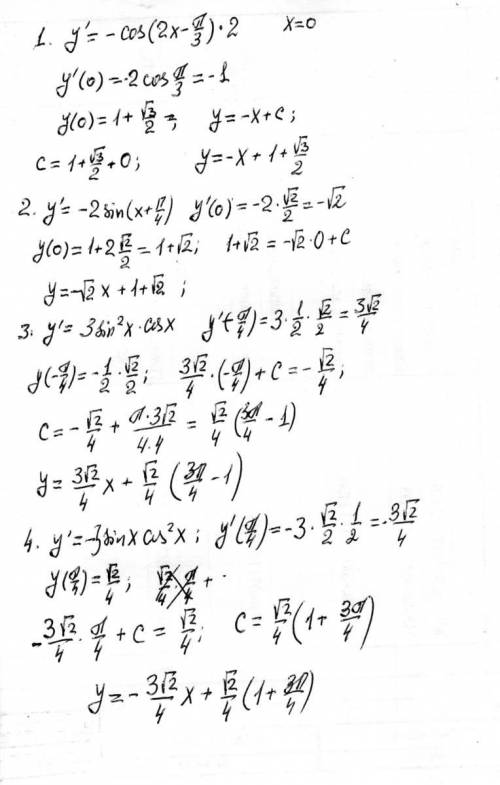 1. y' = -cos(2x - π/3)·2    x=0
y'(0) = -2cos π/3 = -1
y(0) = 1 + √3/2 =;    y = -x + c;
c = 1 + √3/2 + 0;    y = -x + 1 + √3/2
2. y' = -2sin(x + π/4)    y'(0) = -2·√2/2 = -√2
y(0) = 1 + 2√2/2 = 1 + √2;    1 + √2 = -√2·0 + c
y = -√2 x + 1 + √2 ;
3. y' = 3sin²x·cosx    y'(-π/4) = 3·1/2·√2/2 = 3√2/4
y(-π/4) = -1/2·√2/2;    3√2/4·(-π/4) + c = -√2/4;
c = -√2/4 + π·3√2/4·4 = √2/4 (3π/4 - 1)
y = 3√2/4 x + √2/4 (3π/4 - 1)
4. y' = -3sinx cos²x;    y'(π/4) = -3·√2/2·1/2 = -3√2/4
y(π/4) = √2/4;    √2/4·π/4 + ·
-3√2/4·π/4 + c = √2/4;    c = √2/4 (1 + 3π/4)
y = -3√2/4 x + √2/4 (1 + 3π/4)